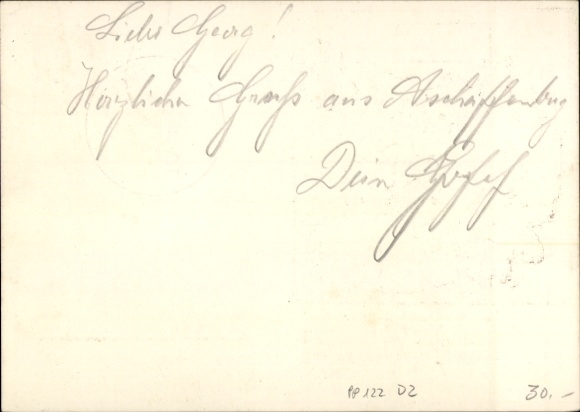 Lieber Georg!
Herzlichen Gruß aus Aschaffenburg
Dein
PP 122 D2 30.-